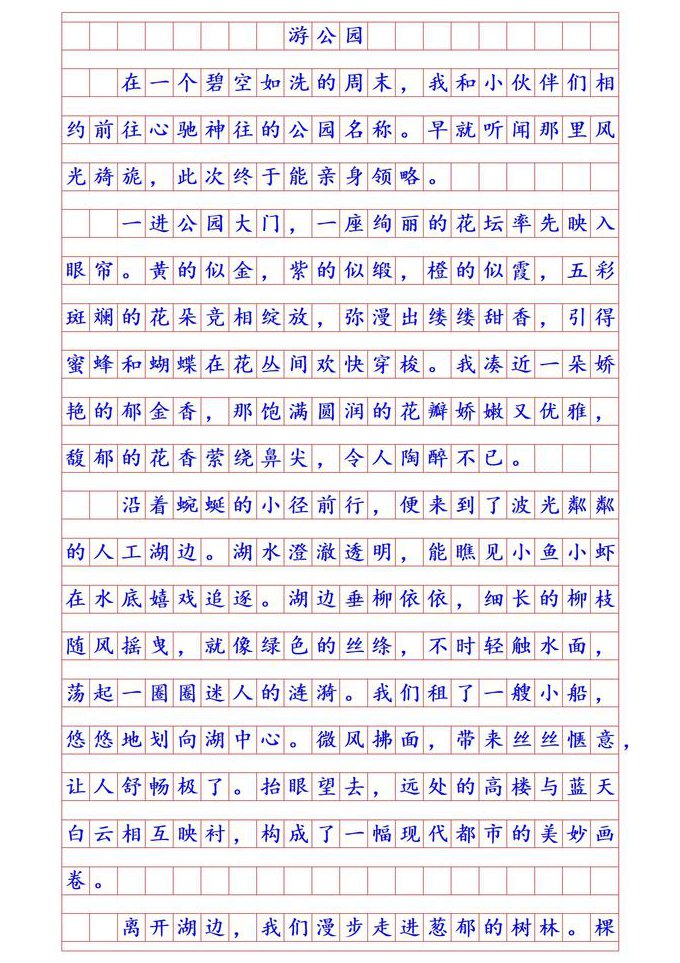 游公园
在一个碧空如洗的周末，我和小伙伴们相
约前往心驰神往的公园名称。早就听闻那里风
光旖旎，此次终于能亲身领略。
一进公园大门，一座绚丽的花坛率先映入
眼帘。黄的似金，紫的似缎，橙的似霞，五彩
斑斓的花朵竞相绽放，弥漫出缕缕甜香，引得
蜜蜂和蝴蝶在花丛间欢快穿梭。我凑近一朵娇
艳的郁金香，那饱满圆润的花瓣娇嫩又优雅，
馥郁的花香萦绕鼻尖，令人陶醉不已。
沿着蜿蜒的小径前行，便来到了波光粼粼
的人工湖边。湖水澄澈透明，能瞧见小鱼小虾
在水底嬉戏追逐。湖边垂柳依依，细长的柳枝
随风摇曳，就像绿色的丝绦，不时轻触水面，
荡起一圈圈迷人的涟漪。我们租了一艘小船，
悠悠地划向湖中心。微风拂面，带来丝丝惬意，
让人舒畅极了。抬眼望去，远处的高楼与蓝天
白云相互映衬，构成了一幅现代都市的美妙画
卷。
离开湖边，我们漫步走进葱郁的树林。棵